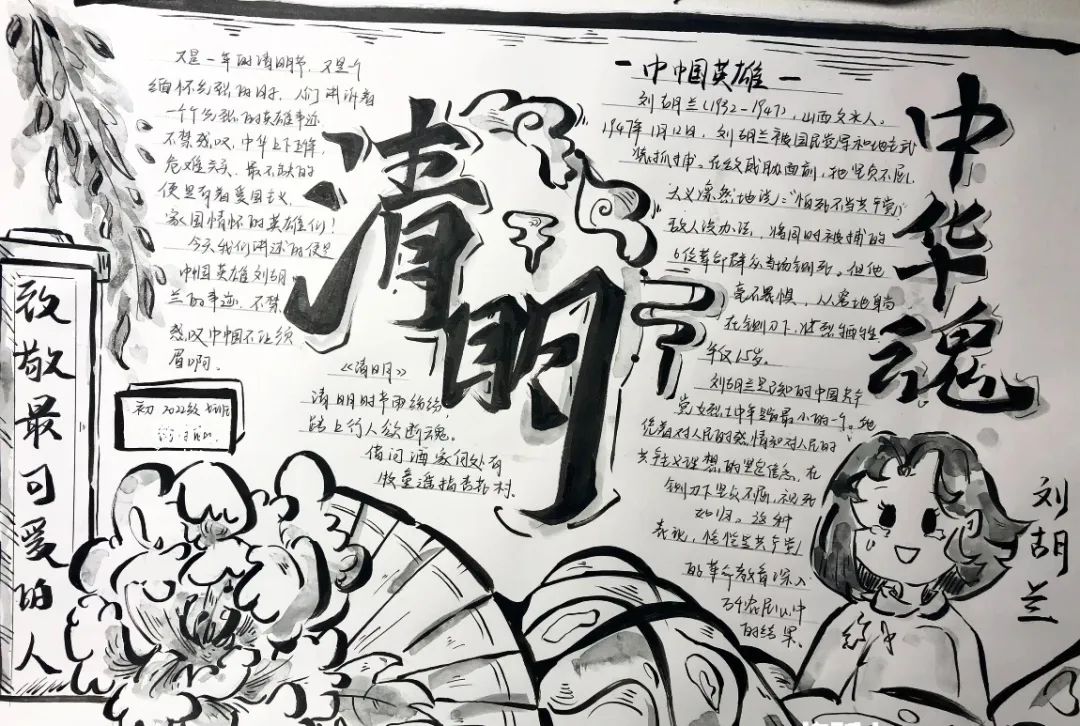 又是一年的清明节，又是个
缅怀先烈的时，人们讲诉着
一个个先烈的英雄事迹
不禁感叹，中华上下五千年，
危难关头，最不缺的
便是有着爱国主义，
家国情怀的英雄们！
今天我们讲述的便是
中国英雄刘胡
兰的事迹，不禁
感叹巾帼不让须
眉啊。
清明节
《清明》
清明时节雨纷纷，
路上行人欲断魂。
借问酒家何处有
牧童遥指杏花村.
致敬最可爱的人
初2022级
- 中国英雄 -
刘胡兰(1932-1947)，山西文水人。
1947年1月12日，刘胡兰被国民党军和地主武
装抓捕。在威胁面前，她坚贞不屈
大义凛然地说："怕死不当共产党！"
敌人没办法，将同时被捕的
6位革命群众当场铡死。但她
毫不畏惧，从容地躺
在铡刀下，壮烈牺牲.
年仅15岁。
刘胡兰是已知的中国共产
党女烈士中年龄最小的一个。她
凭着对人民的感情和对人民的
共产主义理想的坚定信念，在
铡刀下坚贞不屈，视死
如归。这种
表现，恰恰是共产党
的革命教育深入
农民心中
的结果。
中华魂
刘胡兰